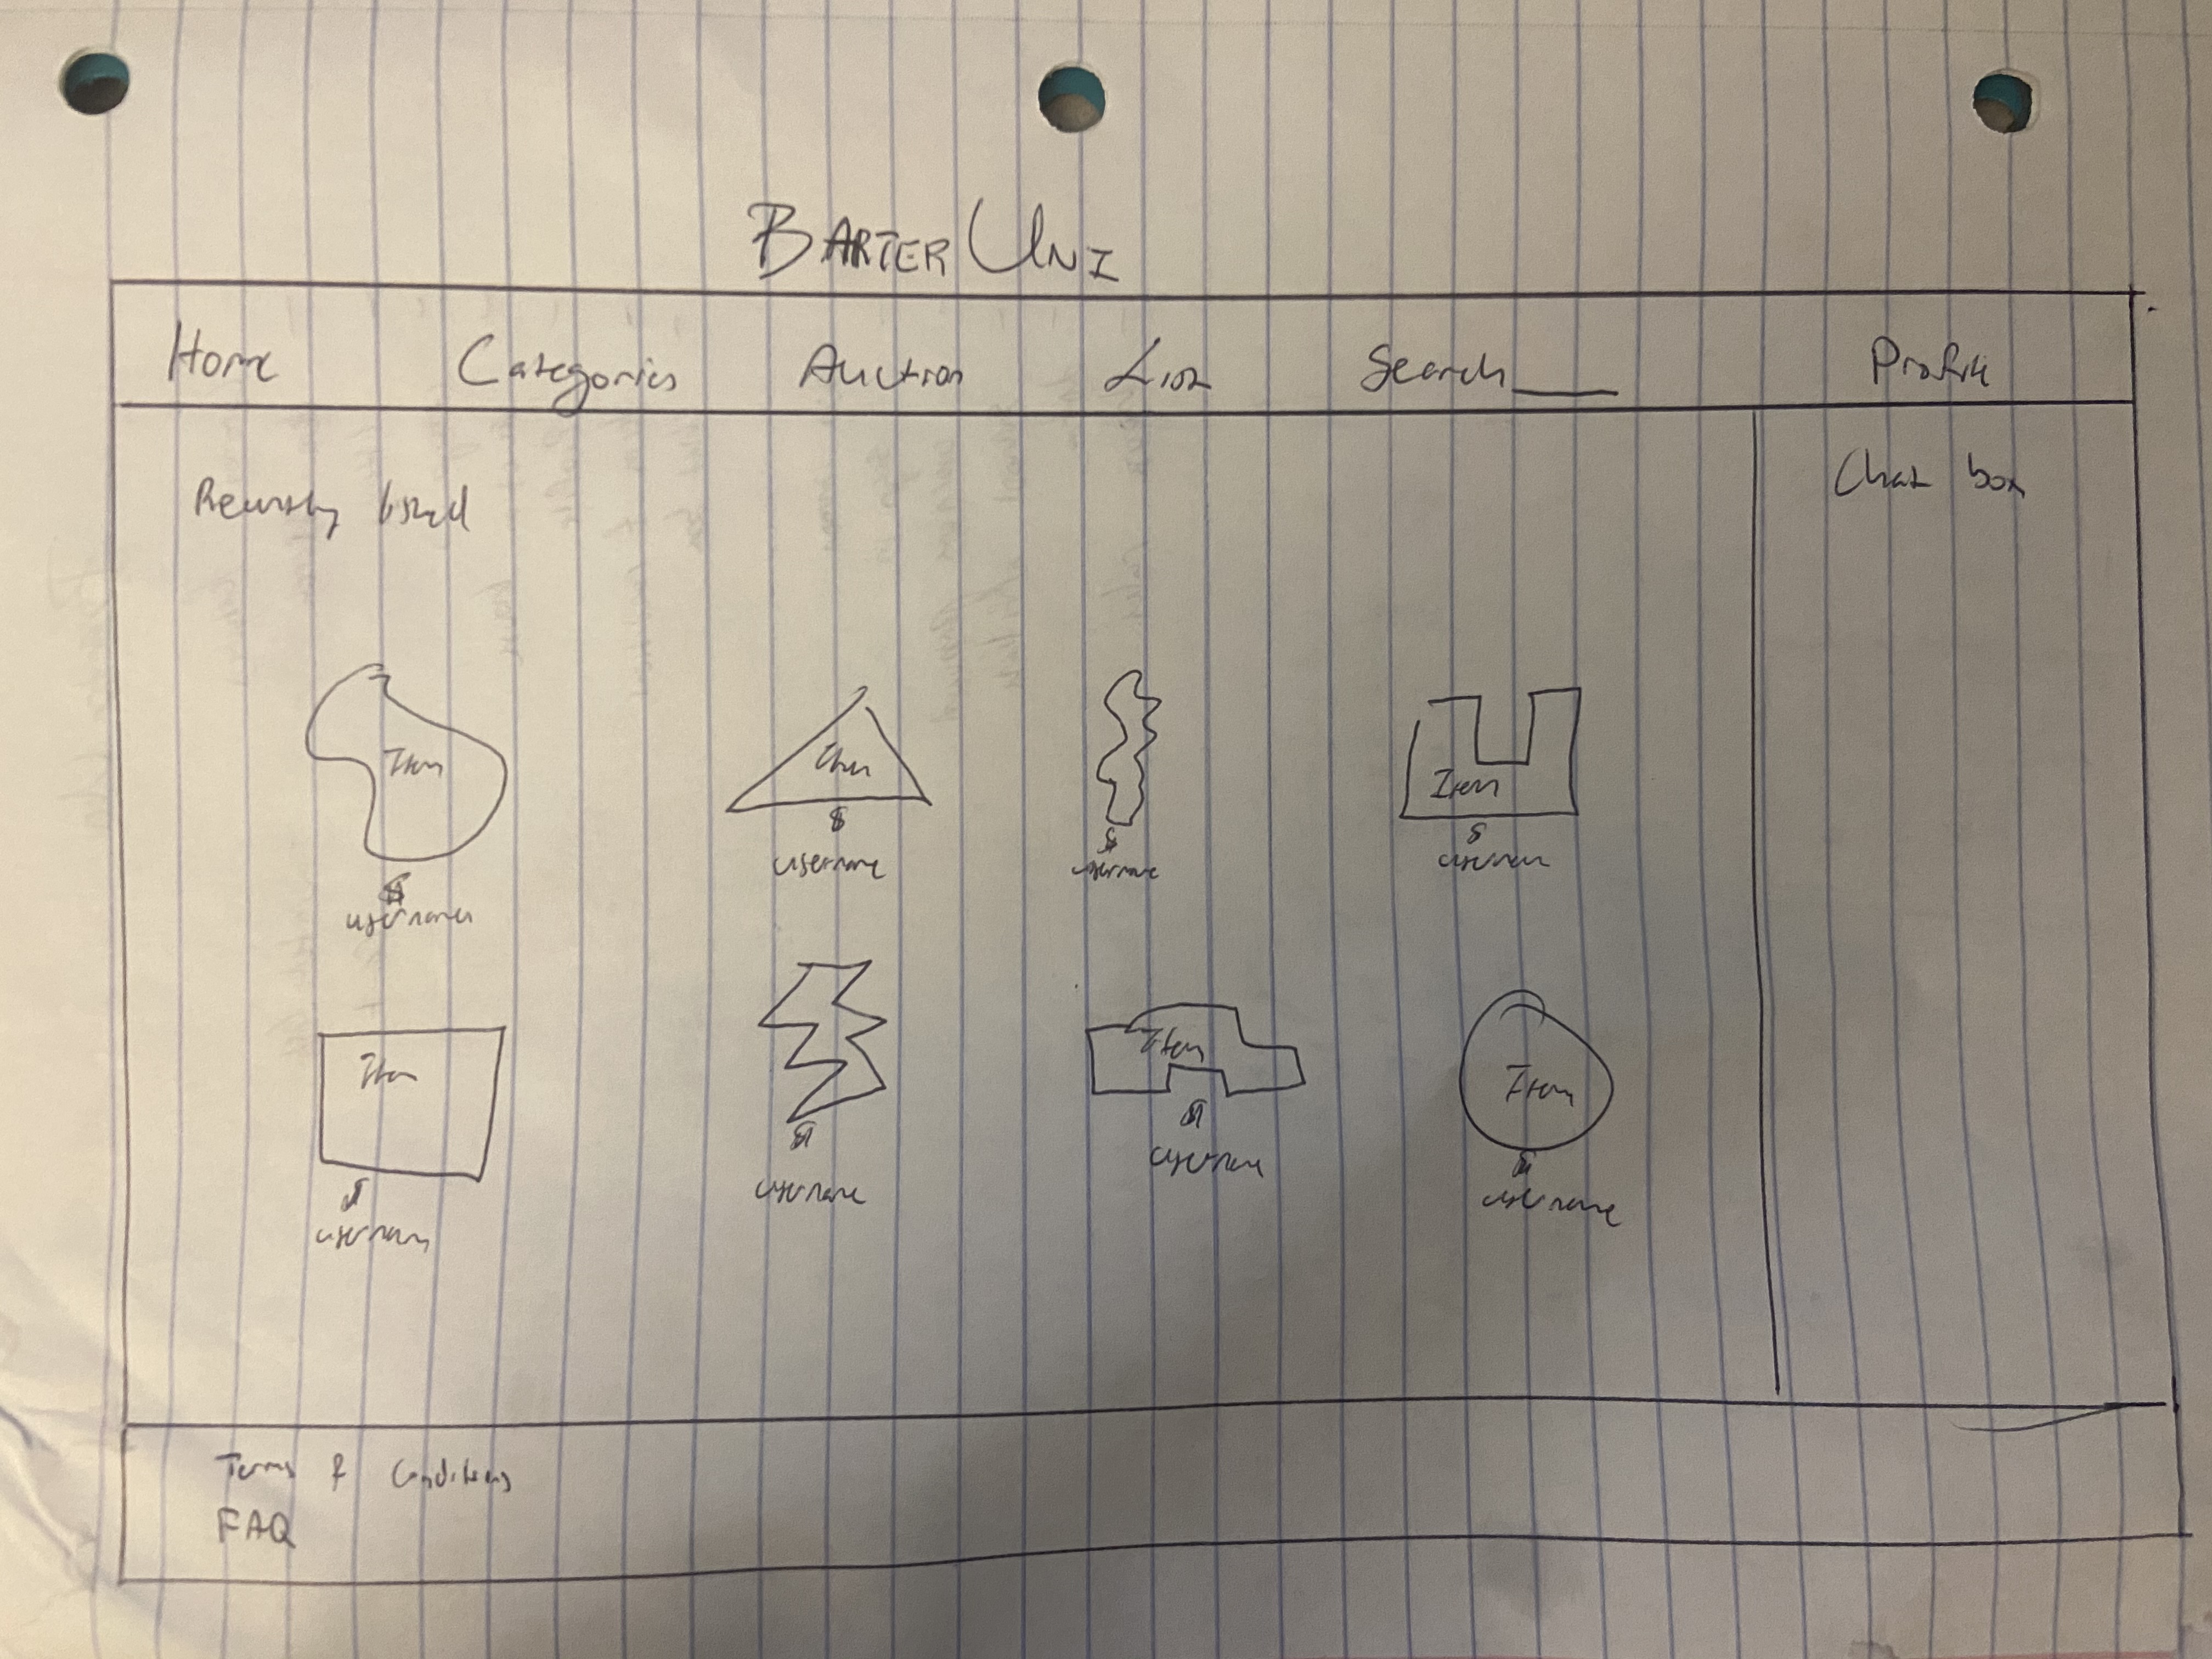 BARTER UNI
Home Categories Auction List Search Profile
Recently listed Chat box
Item Item Item
$ $ $ $
username username username username
Item Item Item
$ $ $ $
username username username username
Terms & Conditions
FAQ